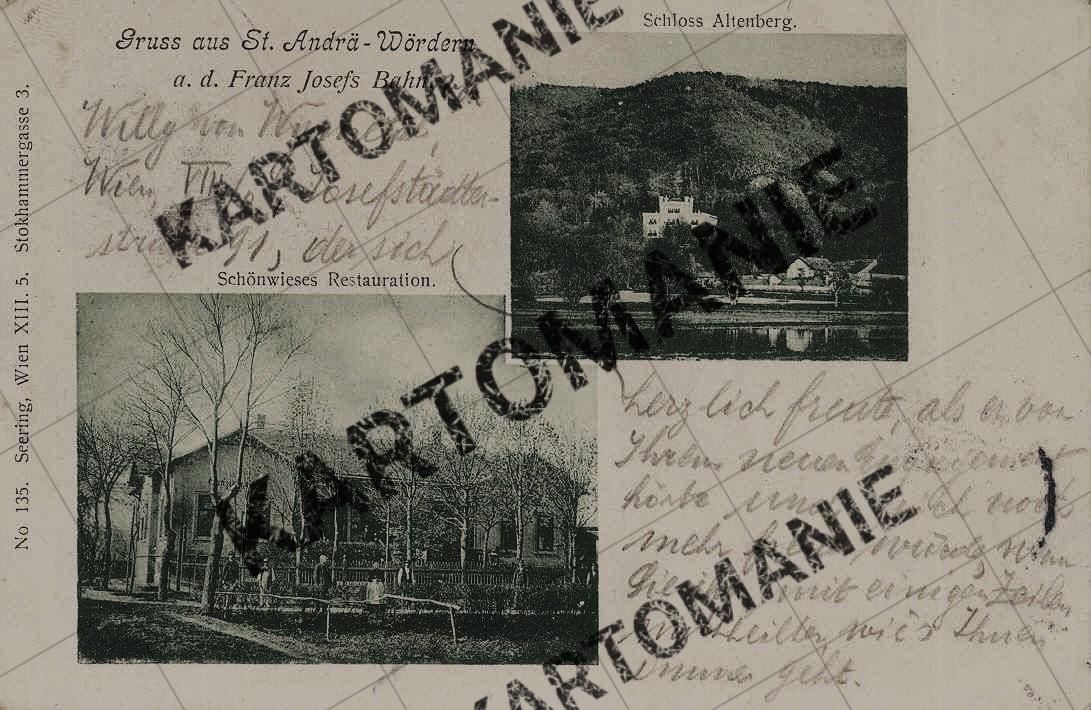 Gruss aus St. Andrä-Wördern
a. d. Franz Josefs Bahn.
Schloss Altenberg.
Willy von
Wien, VIII Josefstädter-
91, der sich
Schönwieses Restauration.
herzlich freute, als er von
Ihrem neuen
hörte und noch
mehr würde, wenn
Sie mit einigen Zeilen
wie's Ihnen
immer geht.
No 135. Seering, Wien XIII. 5. Stokhammergasse 3.
KARTOMANIE
KARTOMANIE
KARTOMANIE